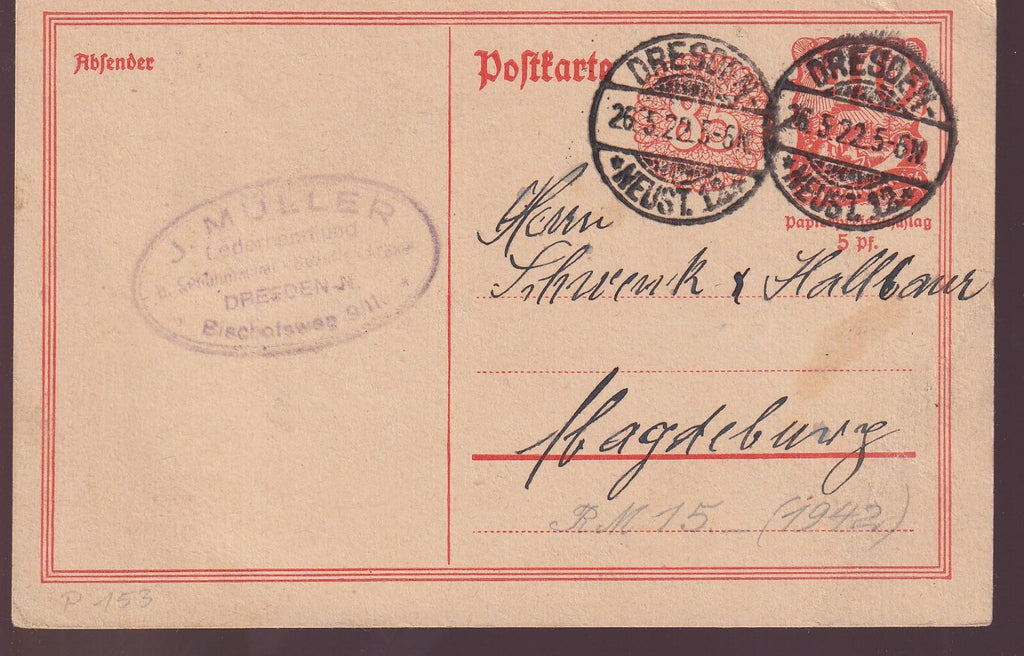 Absender
Postkarte
DRESDEN-
26.5.22.5-6N
*NEUST. 12.*
DRESDEN-
26.5.22.5-6N
*NEUST. 12.*
5 Pf.
J. MÜLLER
Lederhandlung
DRESDEN-N.
Bischofsweg
Herrn
Schwenk & Hallbaur
Magdeburg
RM 15 (1942)
P 153